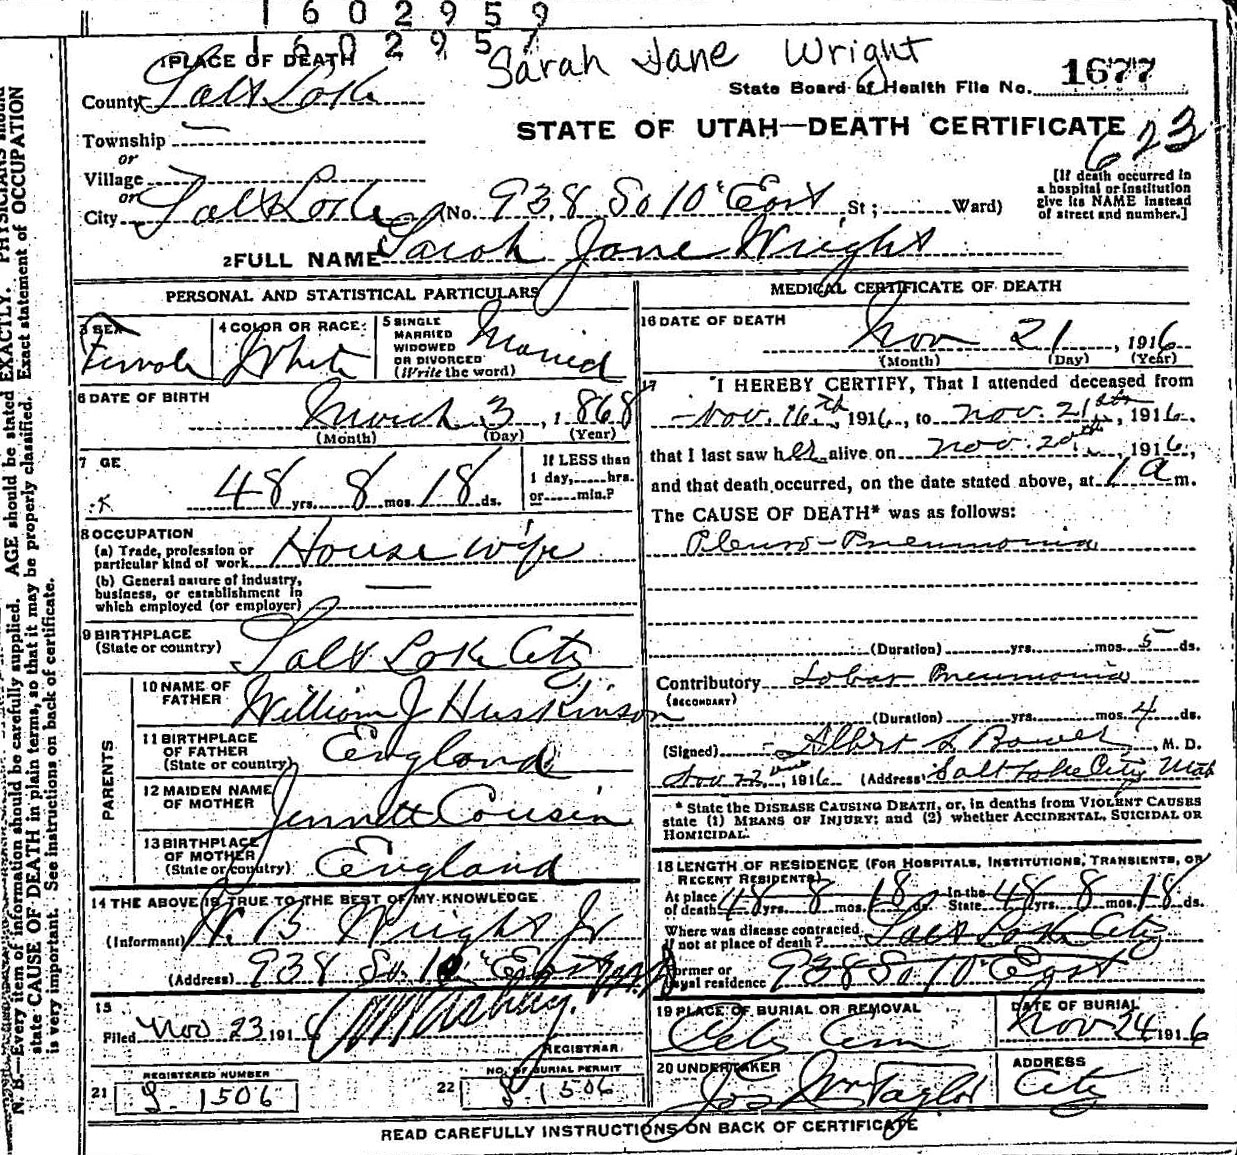 1602959
1602957
Sarah Jane Wright
1 PLACE OF DEATH
State Board of Health File No. 1677
County Salt Lake
STATE OF UTAH—DEATH CERTIFICATE
623
Township —
or
Village
or
City Salt Lake (No. 938 So 10" East St; Ward)
[If death occurred in
a hospital or institution
give its NAME instead
of street and number.]
2 FULL NAME Sarah Jane Wright
PERSONAL AND STATISTICAL PARTICULARS
3 SEX
Female
4 COLOR OR RACE:
White
5 SINGLE
MARRIED
WIDOWED
OR DIVORCED
(Write the word)
Married
6 DATE OF BIRTH
March 3, 1868
(Month) (Day) (Year)
7 GE
48 yrs. 8 mos. 18 ds.
If LESS than
1 day, hrs.
or min.?
8 OCCUPATION
(a) Trade, profession or
particular kind of work House wife
(b) General nature of industry,
business, or establishment in
which employed (or employer) —
9 BIRTHPLACE
(State or country) Salt Lake City
PARENTS
10 NAME OF
FATHER William J Huskinson
11 BIRTHPLACE
OF FATHER
(State or country) England
12 MAIDEN NAME
OF MOTHER Jennett Cousin
13 BIRTHPLACE
OF MOTHER
(State or country) England
14 THE ABOVE IS TRUE TO THE BEST OF MY KNOWLEDGE
(Informant) W. B Wright Jr
(Address) 938 So. 10 "East
15
Filed Nov 23 1916
REGISTRAR
REGISTERED NUMBER
21 1506
NO. OF BURIAL PERMIT
22 1506
MEDICAL CERTIFICATE OF DEATH
16 DATE OF DEATH
Nov 21, 1916
(Month) (Day) (Year)
17 I HEREBY CERTIFY, That I attended deceased from
Nov. 16th, 1916, to Nov. 21st, 1916.
that I last saw her alive on Nov. 20th, 1916,
and that death occurred, on the date stated above, at 1 a m.
The CAUSE OF DEATH* was as follows:
Pleuro-Pneumonia
(Duration) yrs. mos. 5 ds.
Contributory Lobar Pneumonia
(SECONDARY)
(Duration) yrs. mos. 4 ds.
(Signed) Albert L Bower, M. D.
Nov 22, 1916 (Address) Salt Lake City Utah
* State the DISEASE CAUSING DEATH, or, in deaths from VIOLENT CAUSES
state (1) MEANS OF INJURY; and (2) whether ACCIDENTAL, SUICIDAL OR
HOMICIDAL.
18 LENGTH OF RESIDENCE (FOR HOSPITALS, INSTITUTIONS, TRANSIENTS, OR
RECENT RESIDENTS)
At place
of death 48 yrs. 8 mos. 18 ds. In the
State 48 yrs. 8 mos. 18 ds.
Where was disease contracted
if not at place of death? Salt Lake City
Former or
usual residence 938 So 10" East
19 PLACE OF BURIAL OR REMOVAL
City Cem
DATE OF BURIAL
Nov 24 1916
20 UNDERTAKER
Jos Wm Taylor
ADDRESS
City
READ CAREFULLY INSTRUCTIONS ON BACK OF CERTIFICATE
N. B.—Every item of information should be carefully supplied. AGE should be stated EXACTLY. PHYSICIANS should
state CAUSE OF DEATH in plain terms, so that it may be properly classified. Exact statement of OCCUPATION
is very important. See instructions on back of certificate.